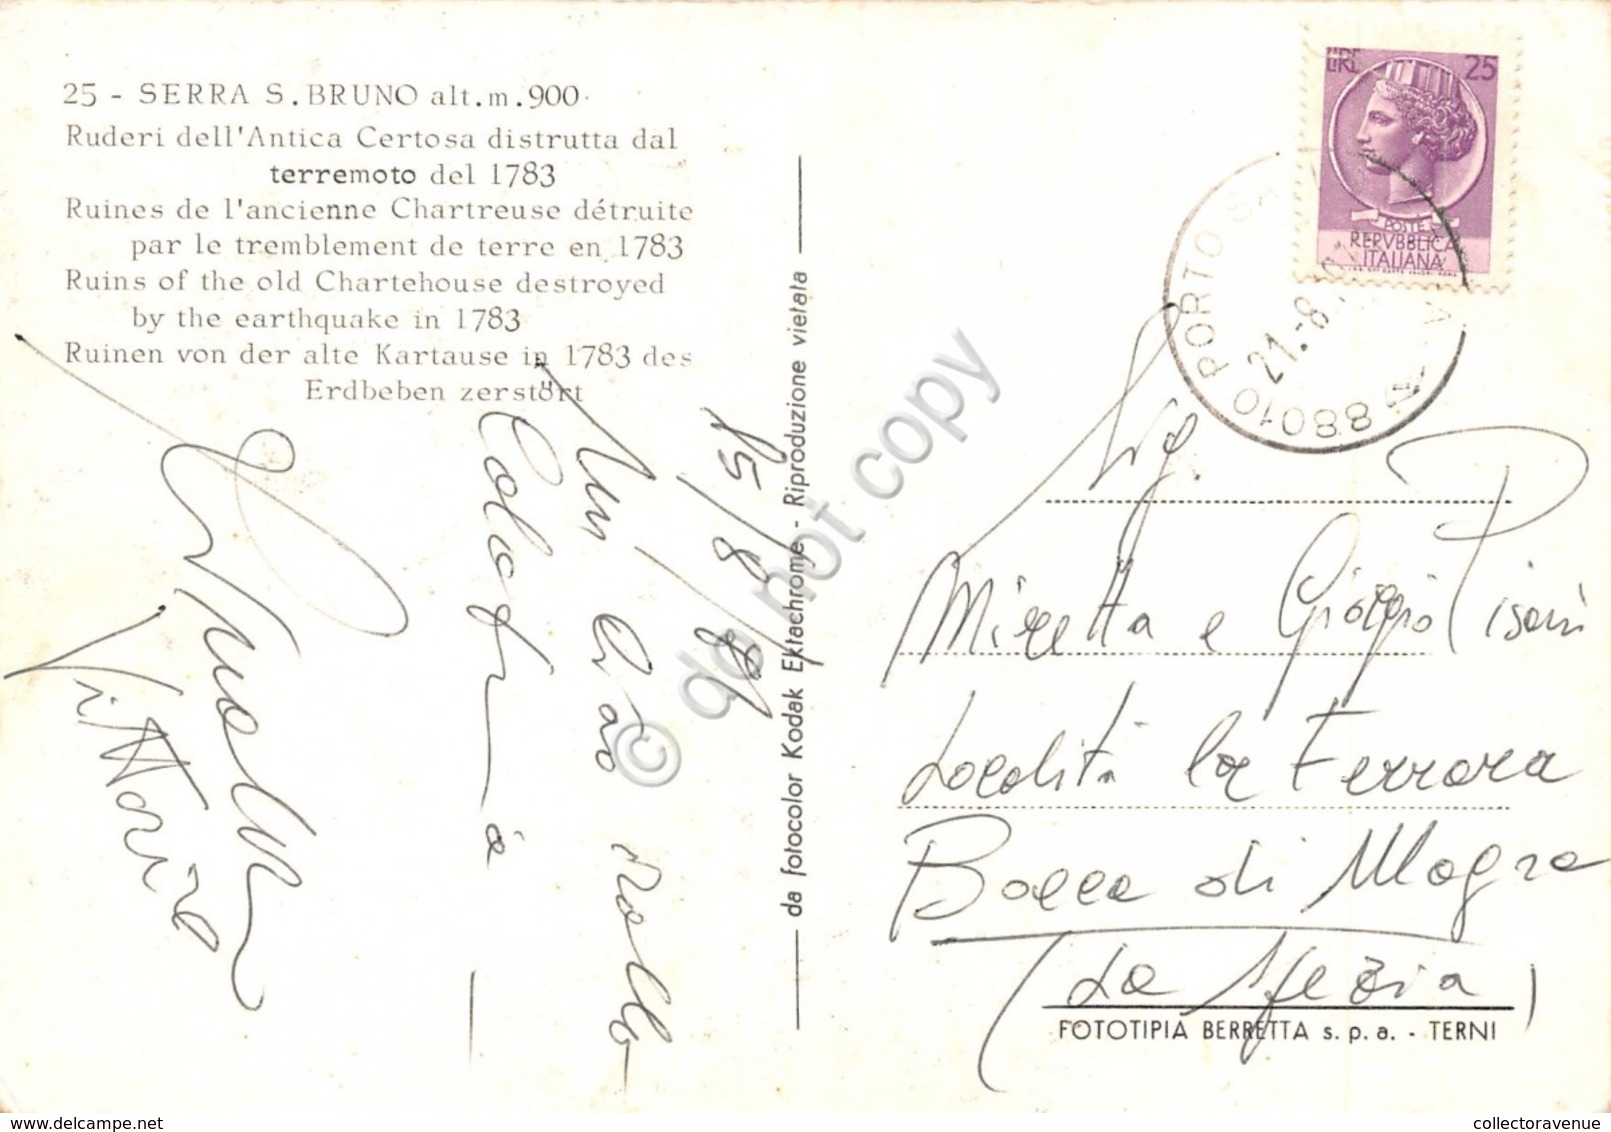 25 - SERRA S. BRUNO alt. m. 900
Ruderi dell'Antica Certosa distrutta dal
terremoto del 1783
Ruines de l'ancienne Chartreuse détruite
par le tremblement de terre en 1783
Ruins of the old Chartehouse destroyed
by the earthquake in 1783
Ruinen von der alte Kartause in 1783 des
Erdbeben zerstört
Un Ciao dalla
Calabria
Vittorino
da fotocolor Kodak Ektachrome - Riproduzione vietata
LIRE 25
POSTE
REPVBBLICA
ITALIANA
88010 PORTO
21.-8
Sig.
Miretta e Giorgio Pisani
Località la Ferrara
Bocca di Magra
(La Spezia)
FOTOTIPIA BERRETTA s. p. a. - TERNI
© do not copy
www.collectoravenue.com